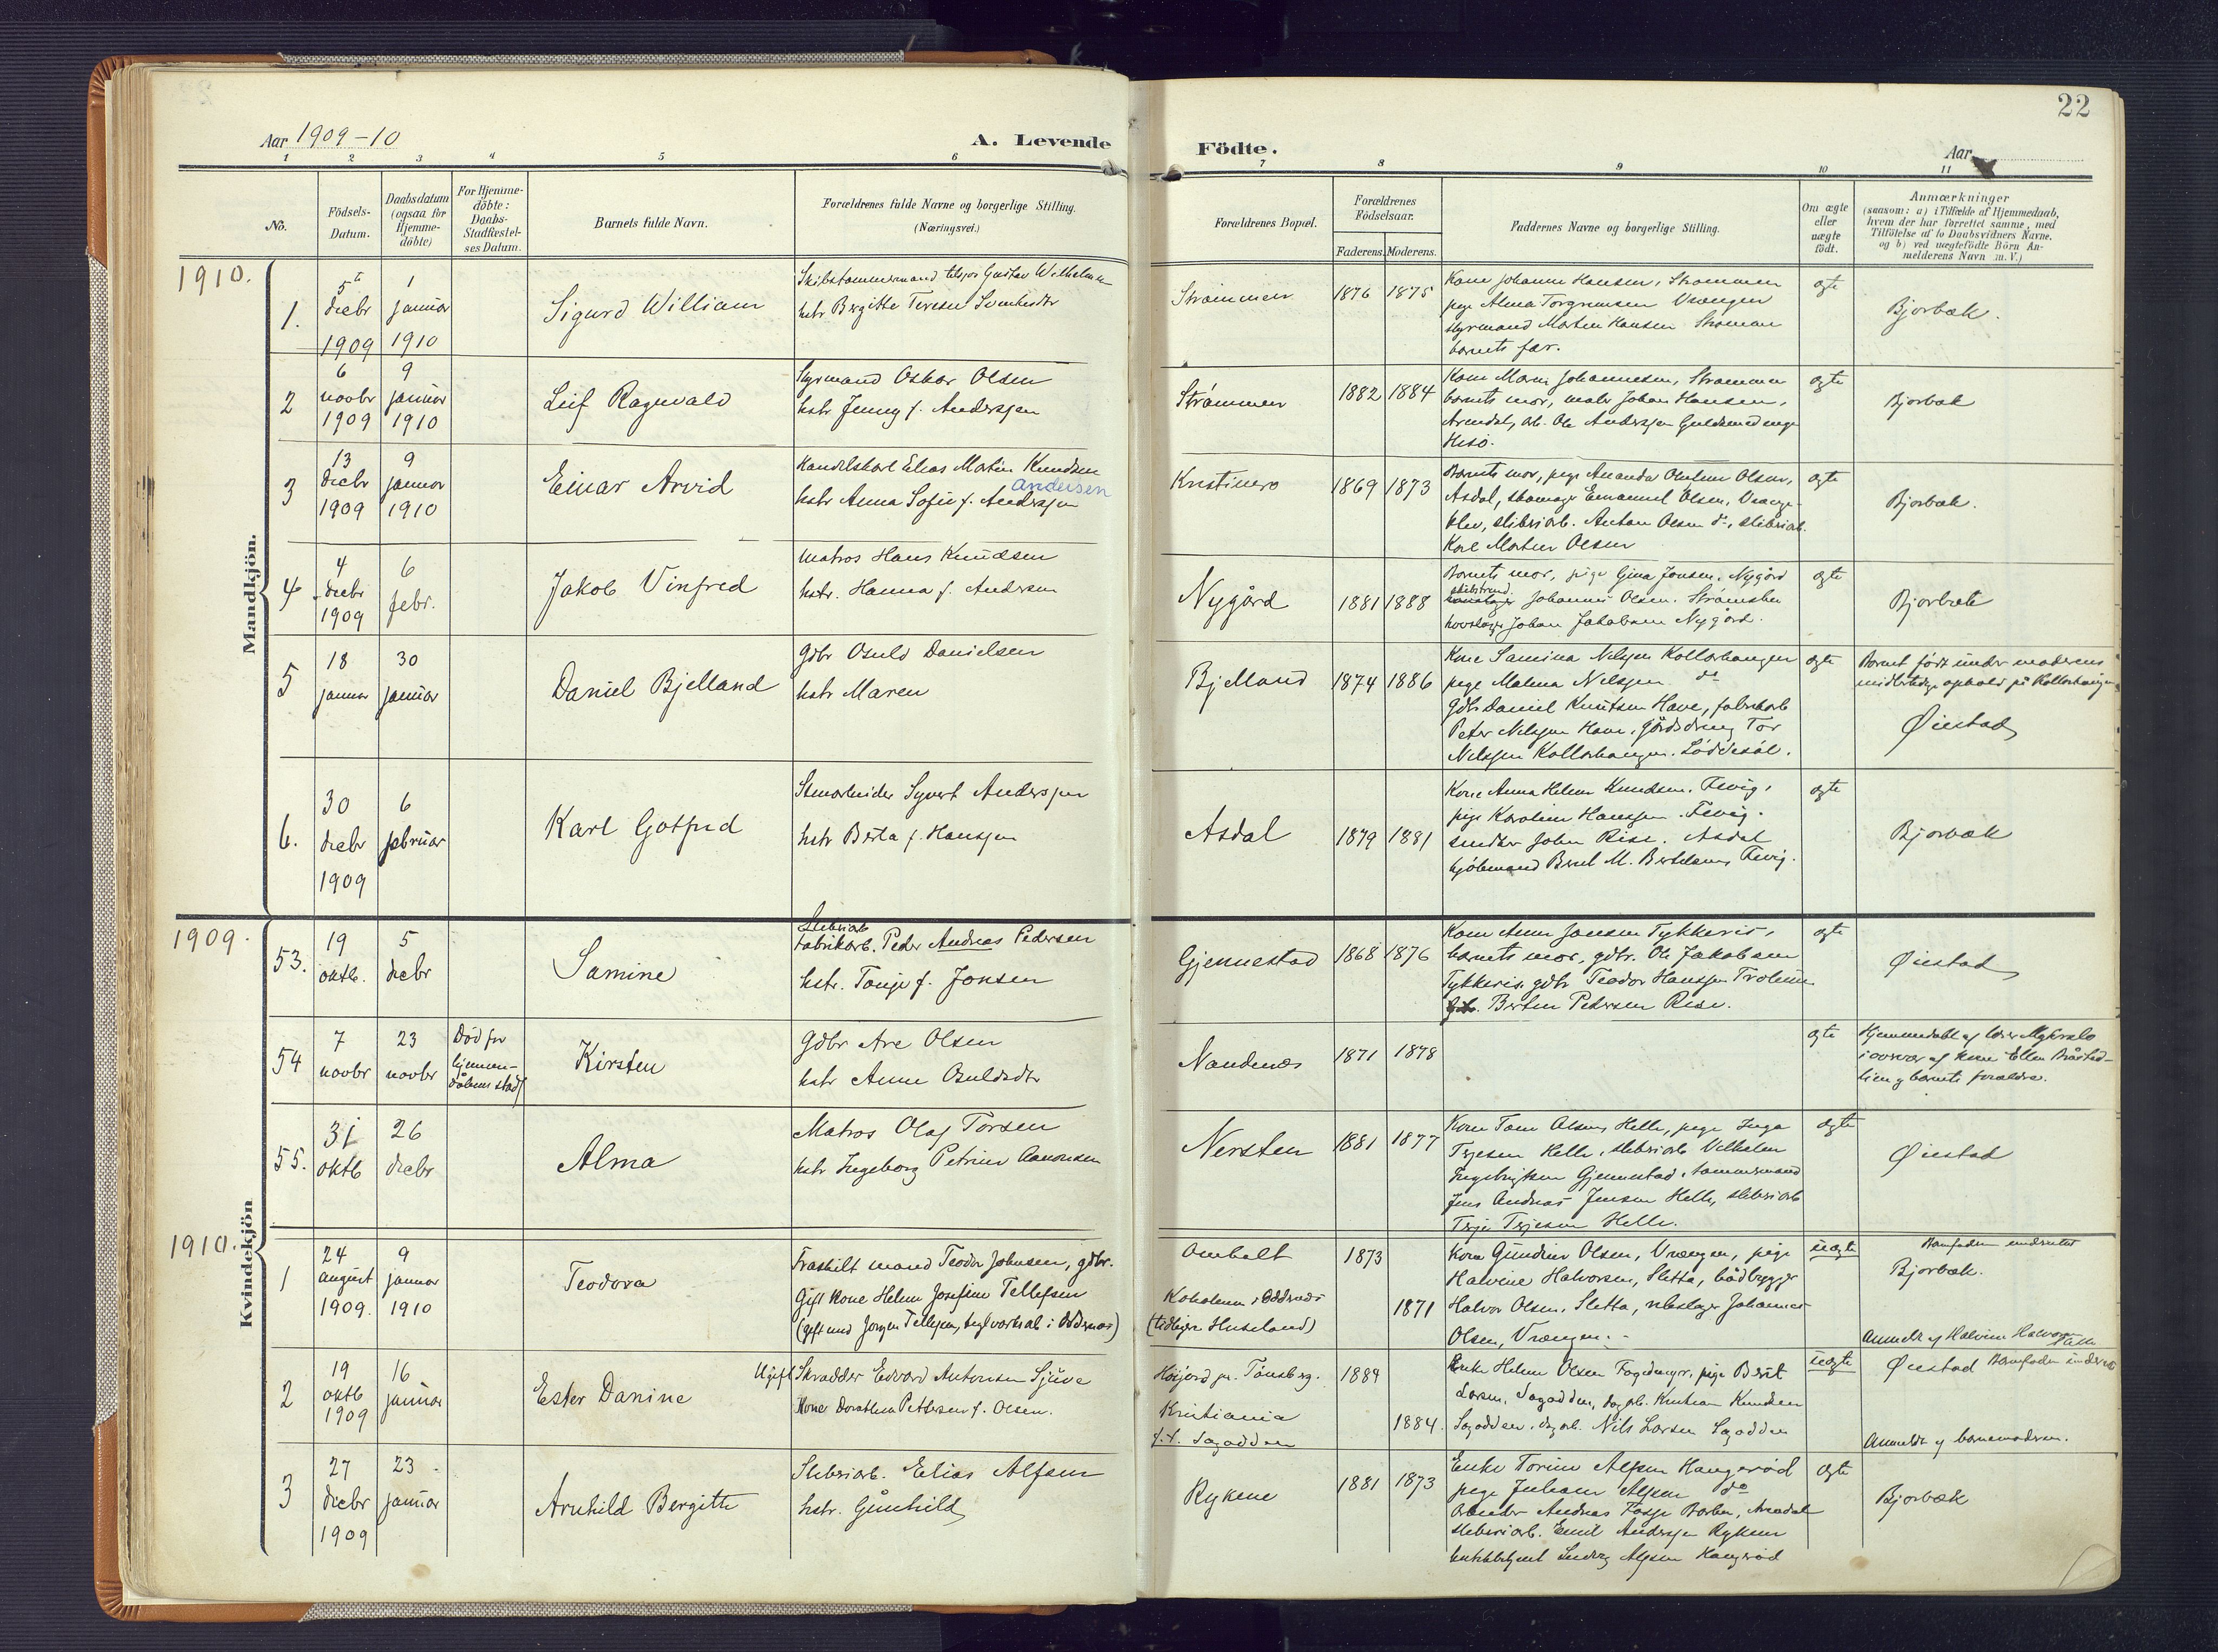 22
Aar 1909-10
A. Levende
Födte.
Aar
1 2 3 4 5 6 7 8 9 10 11
No.
Födsels-
Datum.
Daabsdatum
(ogsaa for
Hjemme-
döbte)
For Hjemme-
döbte:
Daabs-
Stadfæstel-
ses Datum.
Barnets fulde Navn.
Forældrenes fulde Navne og borgerlige Stilling.
(Næringsvei.)
Forældrenes Bopæl.
Forældrenes
Födselsaar.
Faderens. Moderens.
Faddernes Navne og borgerlige Stilling.
Om ægte
eller
uægte
födt.
Anmærkninger
(saasom: a) i Tilfælde af Hjemmedaab,
hvem der har forrettet samme, med
Tilföielse af to Daabsvidners Navne,
og b) ved uægtefödte Börn An-
melderens Navn m. V.)
Mandkjön.
1910.
1.
5te
decbr
1909
1
januar
1910
Sigurd William
Skibstømmermand Gustav Wilhelmsen
hstr Bergitte Terese
Strømmen
1876 1875
Kone Johanne Hansen, Strømmen
pige Alma Torgrimsen Vrængen
styrmand Morten Hansen Strømmen
barnets far.
ægte
Bjorbæk.
2
6
novbr
1909
9
januar
1910
Leif Ragnvald
Styrmand Oskar Olsen
hstr Jenny f. Anderssen
Strømmen
1882 1884
Kone Maren Johannesen, Strømmen
barnets mor, maler Johan Hansen,
Arendal, arb. Ole Anderssen
Hisö.
ægte
Bjorbæk
3
13
decbr
1909
9
januar
1910
Einar Arvid
Handelskarl Elias Martin Knudsen
Andersen
hstr Anna Sofie f. Anderssen
Kristinero
1869 1873
Barnets mor, pige Amanda Olsen,
Asdal, skomager Emanuel Olsen, Vrænge-
klev, sliberiarb. Anton Olsen do, sliberiarb.
Karl Martin Olsen
ægte
Bjorbæk.
4
4
decbr
1909
6
febr.
Jakob Vinfred
Matros Hans Knudsen
hstr. Hanna f. Andersen
Nygård
1881 1888
Barnets mor, pige Gina Jonsen, Nygård
Johannes Olsen, Strømsbu
Johan Jakobsen Nygård.
ægte
Bjorbæk
5
18
januar
30
januar
Daniel Bjelland
Gdbr Osuld Danielsen
hstr Maren
Bjelland
1874 1886
Kone Samina Nilssen Kollerhaugen
pige Malena Nilssen do
Gdbr Daniel Knutsen Have, fabrikarb
Peter Nilssen Have, gårdsdreng Tor
Nilssen Kollerhaugen. Løddesøl.
ægte
Barnet født under moderens
midlertidige ophold på Kollerhaugen
Øiestad
6.
30
decbr
1909
6
februar
Karl Gotfred
Stenarbeider Syvert Anderssen
hstr Berta f. Hanssen
Asdal
1879 1881
Kone Anna Helene Knudsen, Fevig,
pige Karoline Hanssen, Fevig.
snedker John Rise, Asdal
kjøbmand Berul M. Bertelsen, Fevig.
ægte
Bjorbæk
Kvindekjön
1909.
53.
19
oktb.
5
decbr
Samine
Sliberiarb
Fabrikarb. Peder Andreas Pedersen
hstr. Tonje f. Jonsen
Gjennestad
1868 1876
Kone Anne Jansen Tykkeris,
barnets mor, gdbr. Ole Jakobsen
Tykkeris, gdbr Teodor Hanssen
Berten Pedersen Rise.
ægte
Øiestad
54
7
novbr
23
novbr
Død før
hjemme-
dåbens stadf
Kirsten
Gdbr Are Olsen
hstr Anne Osuldsdtr
Nændenæs
1871 1878
ægte
Hjemmedøbt af
i overvær af kone Ellen
og barnets forældre.
55.
31
oktb
26
decbr
Alma
Matros Olaf Torsen
hstr Ingeborg Petrine Aanonsen
Nersten
1881 1877
Kone Tone Olsen, Helle, pige Inga
Terjesen Helle, sliberiarb Vilhelm
Ingebrigtsen Gjennestad, tømmermand
Jens Andreas Jensen Helle, sliberiarb
Terje Terjesen Helle.
ægte
Øiestad
1910.
1
24
august
1909.
9
januar
1910
Teodora
Fraskilt mand Teodor Johnsen, gdbr.
Gift kone Helene Josefine Tellefsen
(gift med Jørgen Tellefsen, i Oddernes)
Ombelt
Kokolmen i Oddernes
(tidligere Huseland)
1873
1871
Kone Gundine Olsen, Vrængen, pige
Halvine Halvorsen, Sletta, bådbygger
Halvor Olsen, Sletta, rebslager Johannes
Olsen, Vrængen.
uægte
Barnefaderen underrettet
Bjorbæk.
Anmeldt af Halvine Halvorsen
Sletta
2
19
oktb
1909
16
januar
Ester Danine
Ugift Skrædder Edvard Antonsen Sjuve
Kone Dorothea Pettersen f. Olsen.
Høijord pr. Tønsberg.
Kristiania
f.t. Sagodden
1884
1884.
Enke Helene Olsen Fagermyr, pige Berit
Larsen, Sagodden, dagarb. Kristian Knudsen
Sagodden, dagarb. Nils Larsen Sagodden
uægte
Øiestad Barnefaderen underret
Anmeldt af barnemoderen.
3
27
decbr
1909
23
januar
Arnhild Bergitte
Sliberiarb. Elias Alfsen
hstr. Gunhild
Rykene
1881 1873
Enke Torine Alfsen Haugerød
pige Juliane Alfsen do
Arbeider Andreas Arendal
sliberiarb. Emil Anderssen Rykene
Ludvig Alfsen Haugerød
ægte
Bjorbæk